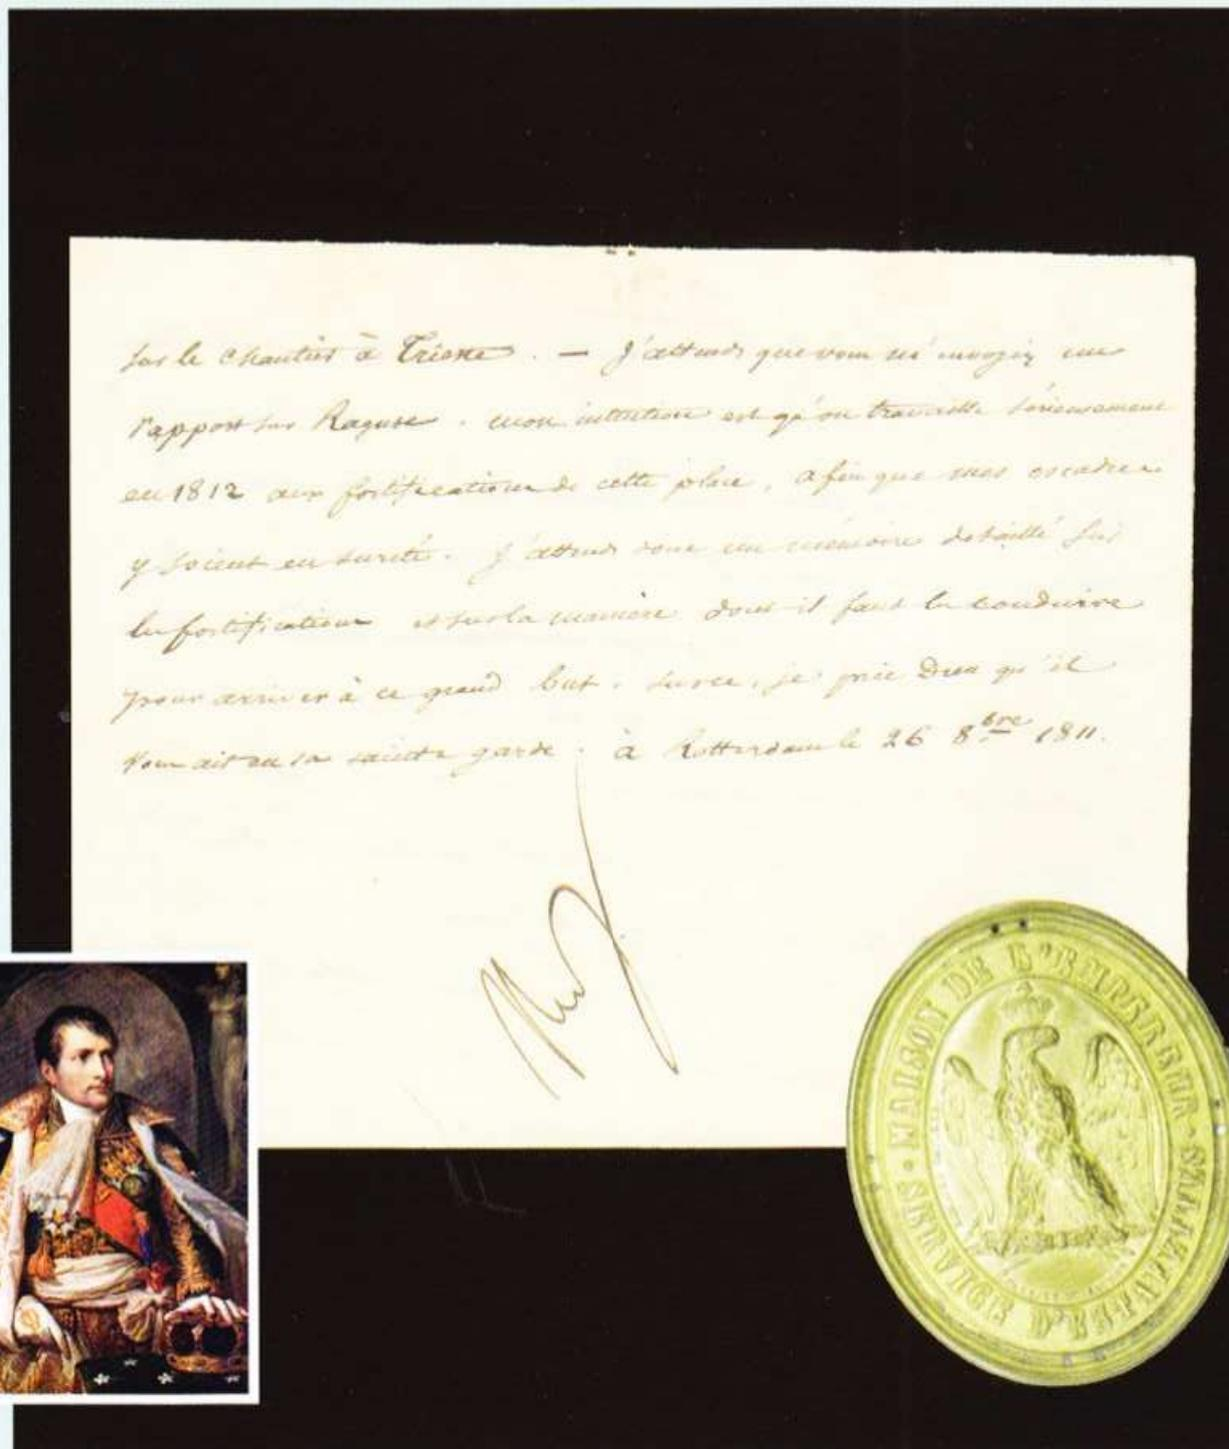 sur le chantier à Trieste. — J'attends que vous m'envoyiez un
rapport sur Raguse. mon intention est qu'on travaille sérieusement
en 1812 aux fortifications de cette place, afin que mes escadres
y soient en sureté. J'attends donc un mémoire détaillé sur
les fortifications et sur la manière dont il faut les conduire
pour arriver à ce grand but. sur ce, je prie Dieu qu'il
vous ait en sa sainte garde. à Rotterdam le 26 8bre 1811.
MAISON DE L'EMPEREUR
SERVICE D'ESTAFETTES